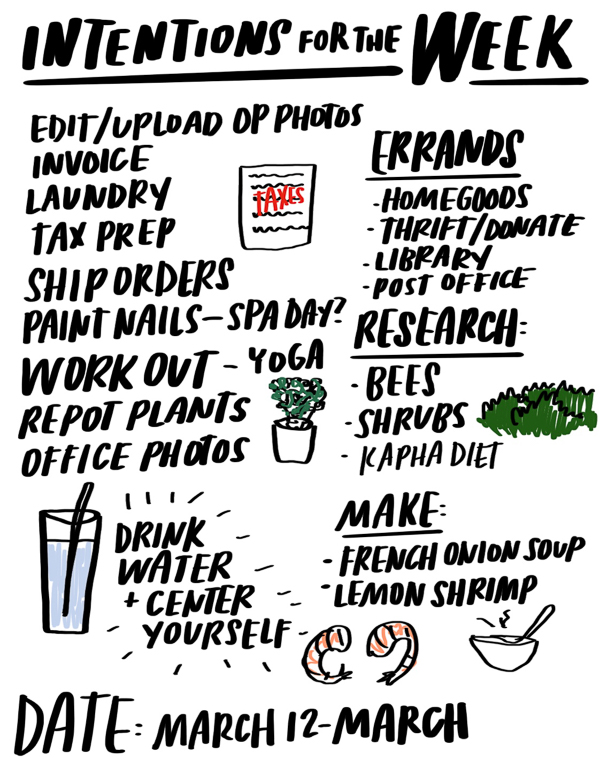 INTENTIONS FOR THE WEEK
EDIT/UPLOAD OP PHOTOS
INVOICE
LAUNDRY
TAX PREP
TAXES
SHIP ORDERS
PAINT NAILS - SPA DAY?
WORK OUT - YOGA
REPOT PLANTS
OFFICE PHOTOS
ERRANDS
- HOMEGOODS
- THRIFT/DONATE
- LIBRARY
- POST OFFICE
RESEARCH:
- BEES
- SHRUBS
- KAPHA DIET
DRINK
WATER
+ CENTER
YOURSELF
MAKE:
- FRENCH ONION SOUP
- LEMON SHRIMP
DATE: MARCH 12-MARCH